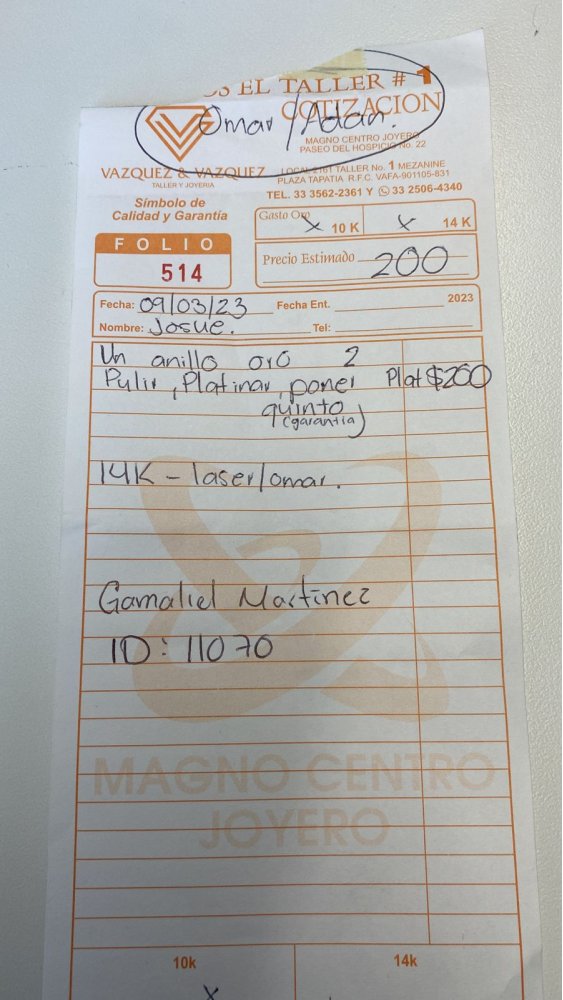 OS EL TALLER # 1
COTIZACION
Omar / Adan.
MAGNO CENTRO JOYERO
PASEO DEL HOSPICIO No. 22
LOCAL 2161 TALLER No. 1 MEZANINE
PLAZA TAPATIA R.F.C. VAFA-901105-831
TEL. 33 3562-2361 Y 33 2506-4340
VAZQUEZ & VAZQUEZ
TALLER Y JOYERIA
Símbolo de
Calidad y Garantía
FOLIO
514
Gasto Oro X 10 K X 14 K
Precio Estimado 200
Fecha: 09/03/23 Fecha Ent. 2023
Nombre: Josue. Tel:
Un anillo oro 2
Pulir, Platinar, poner Plat $200
quinto
(garantia)
14K - laser/omar.
Gamaliel Martinez
ID: 11070
MAGNO CENTRO
JOYERO
10k 14k
X